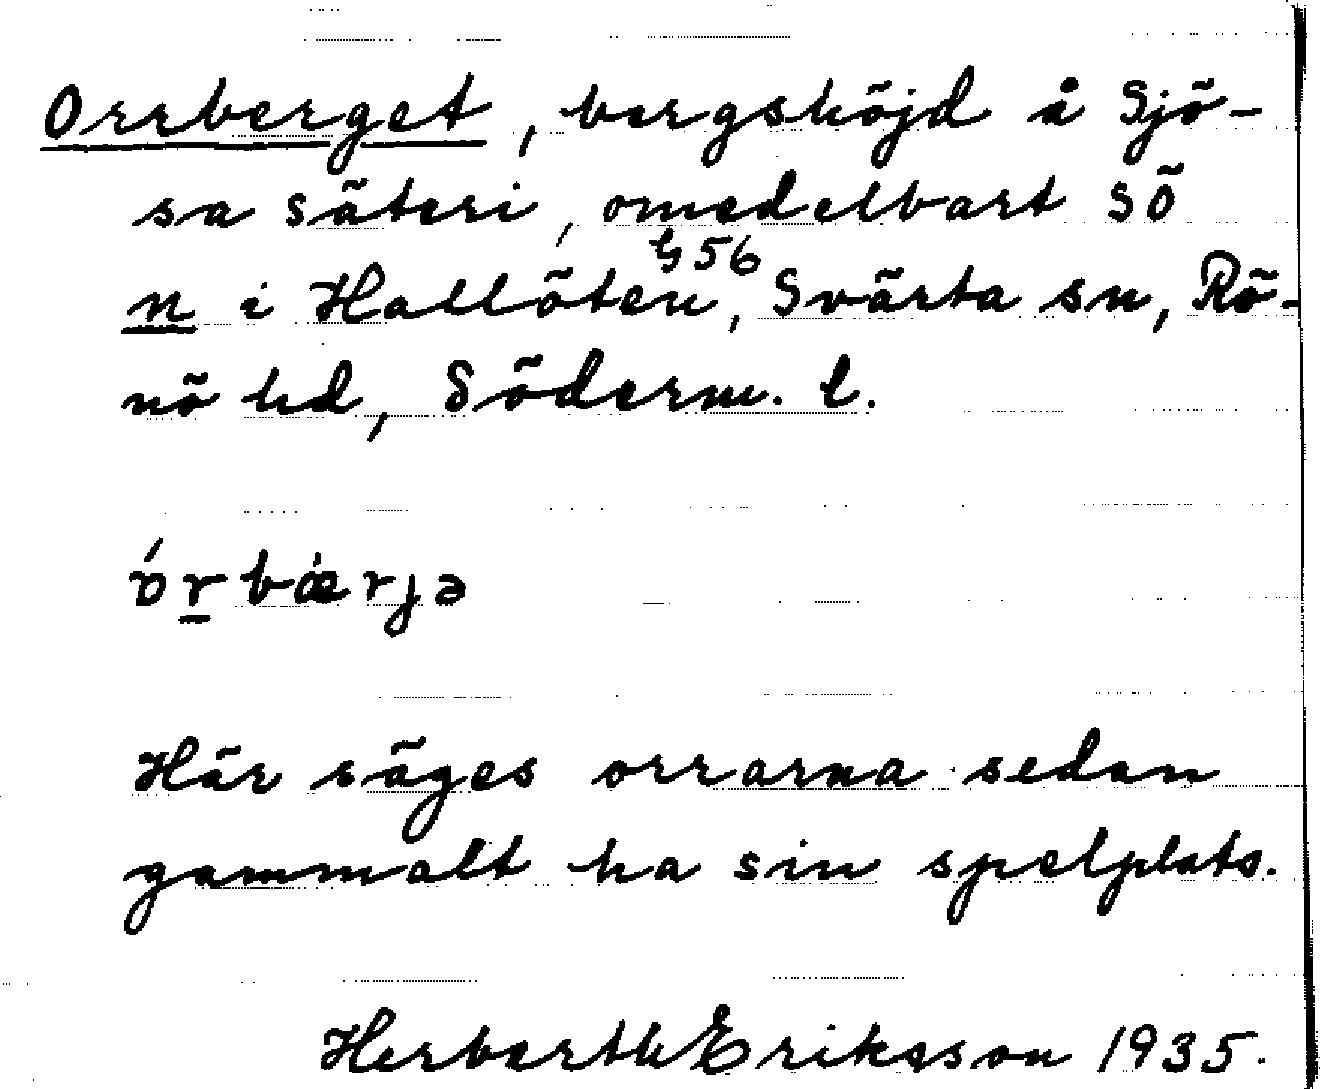 Orrberget, bergshöjd å Sjö-
sa säteri, omedelbart SÖ
n i Hallöten, Svärta sn, Rö-
G56
nö hd, Söderm. l.
órbǽrjə
Här säges orrarna sedan
gammalt ha sin spelplats.
Herberth Eriksson 1935.